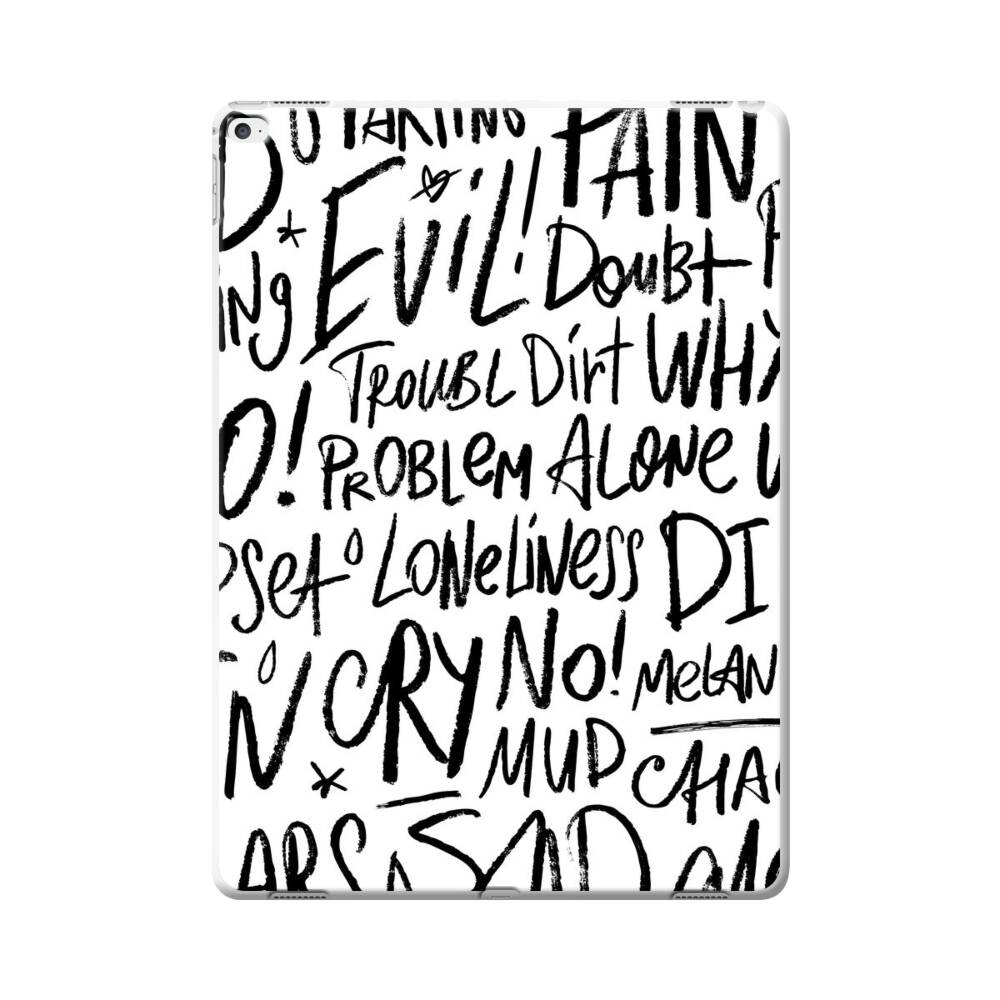 PAIN
EVIL! DOUBT
TROUBL DIRT WHY
O! PROBLEM ALONE
SET LONELINESS DI
CRY NO! MELAN
MUD CHA
ARS SAD